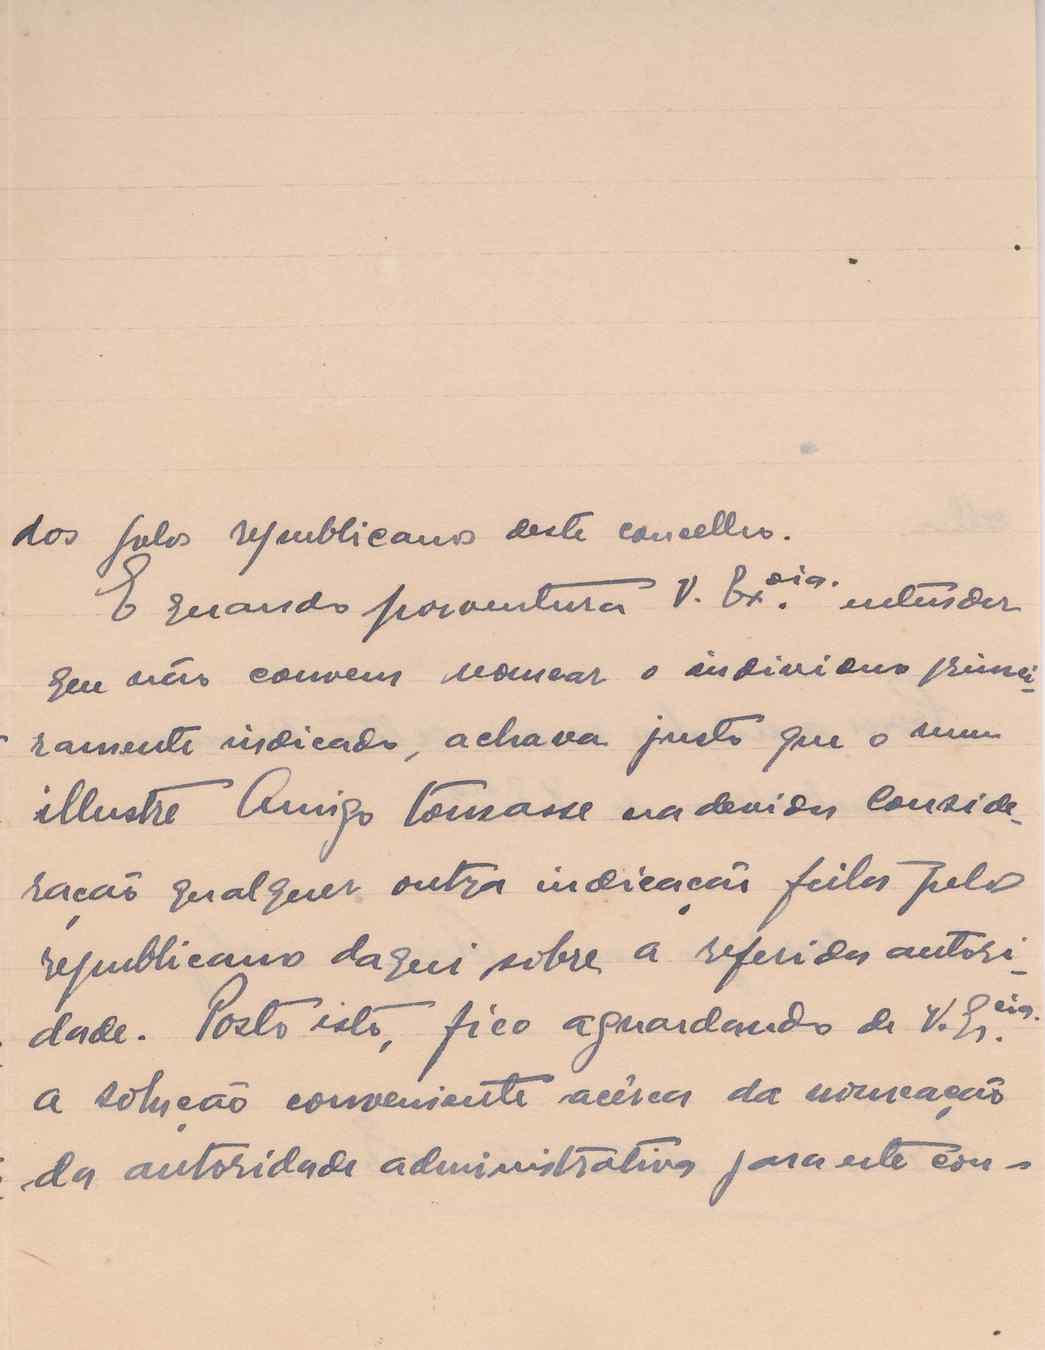 dos pelos republicanos deste concelho.
E quando porventura V. Ex.cia. entender
que não convem nomear o individuo primei-
ramente indicado, achava justo que o meu
illustre Amigo tomasse na devida conside-
ração qualquer outra indicação feita pelo
republicano daqui sobre a referida autori-
dade. Posto isto, fico aguardando de V. Ex.cia.
a solução conveniente acêrca da nomeação
da autoridade administrativa para este con-